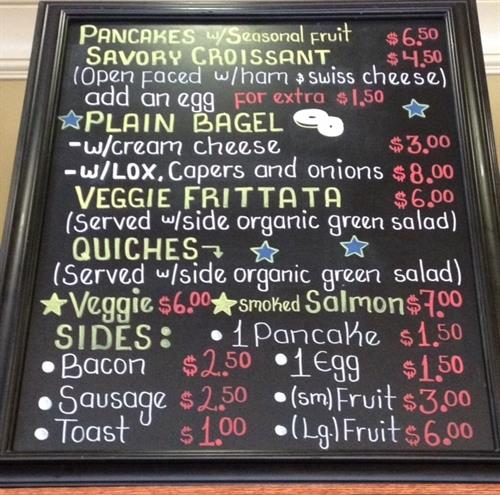 PANCAKES w/Seasonal fruit $6.50
SAVORY CROISSANT $4.50
(Open faced w/ham & swiss cheese)
add an egg For extra $1.50
PLAIN BAGEL
-w/cream cheese $3.00
-w/LOX, Capers and onions $8.00
VEGGIE FRITTATA $6.00
(Served w/side organic green salad)
QUICHES
(Served w/side organic green salad)
Veggie $6.00 smoked Salmon $7.00
SIDES: • 1 Pancake $1.50
• Bacon $2.50 • 1 Egg $1.50
• Sausage $2.50 • (sm) Fruit $3.00
• Toast $1.00 • (Lg.) Fruit $6.00